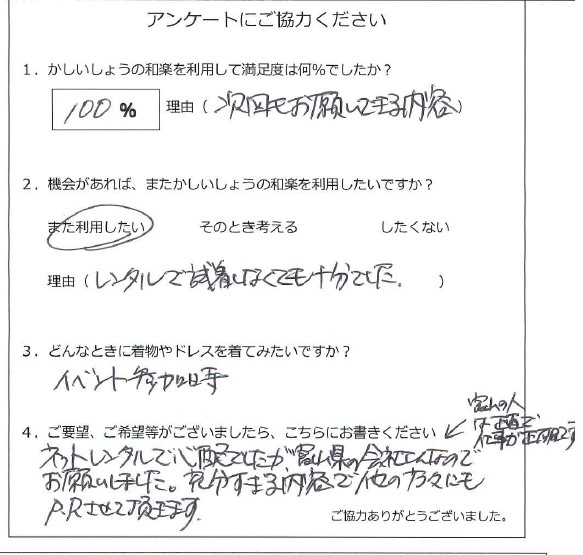 アンケートにご協力ください
1. かしいしょうの和楽を利用して満足度は何%でしたか？
100 % 理由（次回もお願いできる内容）
2. 機会があれば、またかしいしょうの和楽を利用したいですか？
また利用したい そのとき考える したくない
理由（レンタルで試着しなくても十分でした.）
3. どんなときに着物やドレスを着てみたいですか？
イベント参加時
4. ご要望、ご希望等がございましたら、こちらにお書きください
富山の人
は正直で
仕事が正確です
ネットレンタルで心配でしたが富山県の会社なので
お願いしました。充分すぎる内容で他の方々にも
P.Rさせて頂きます.
ご協力ありがとうございました。